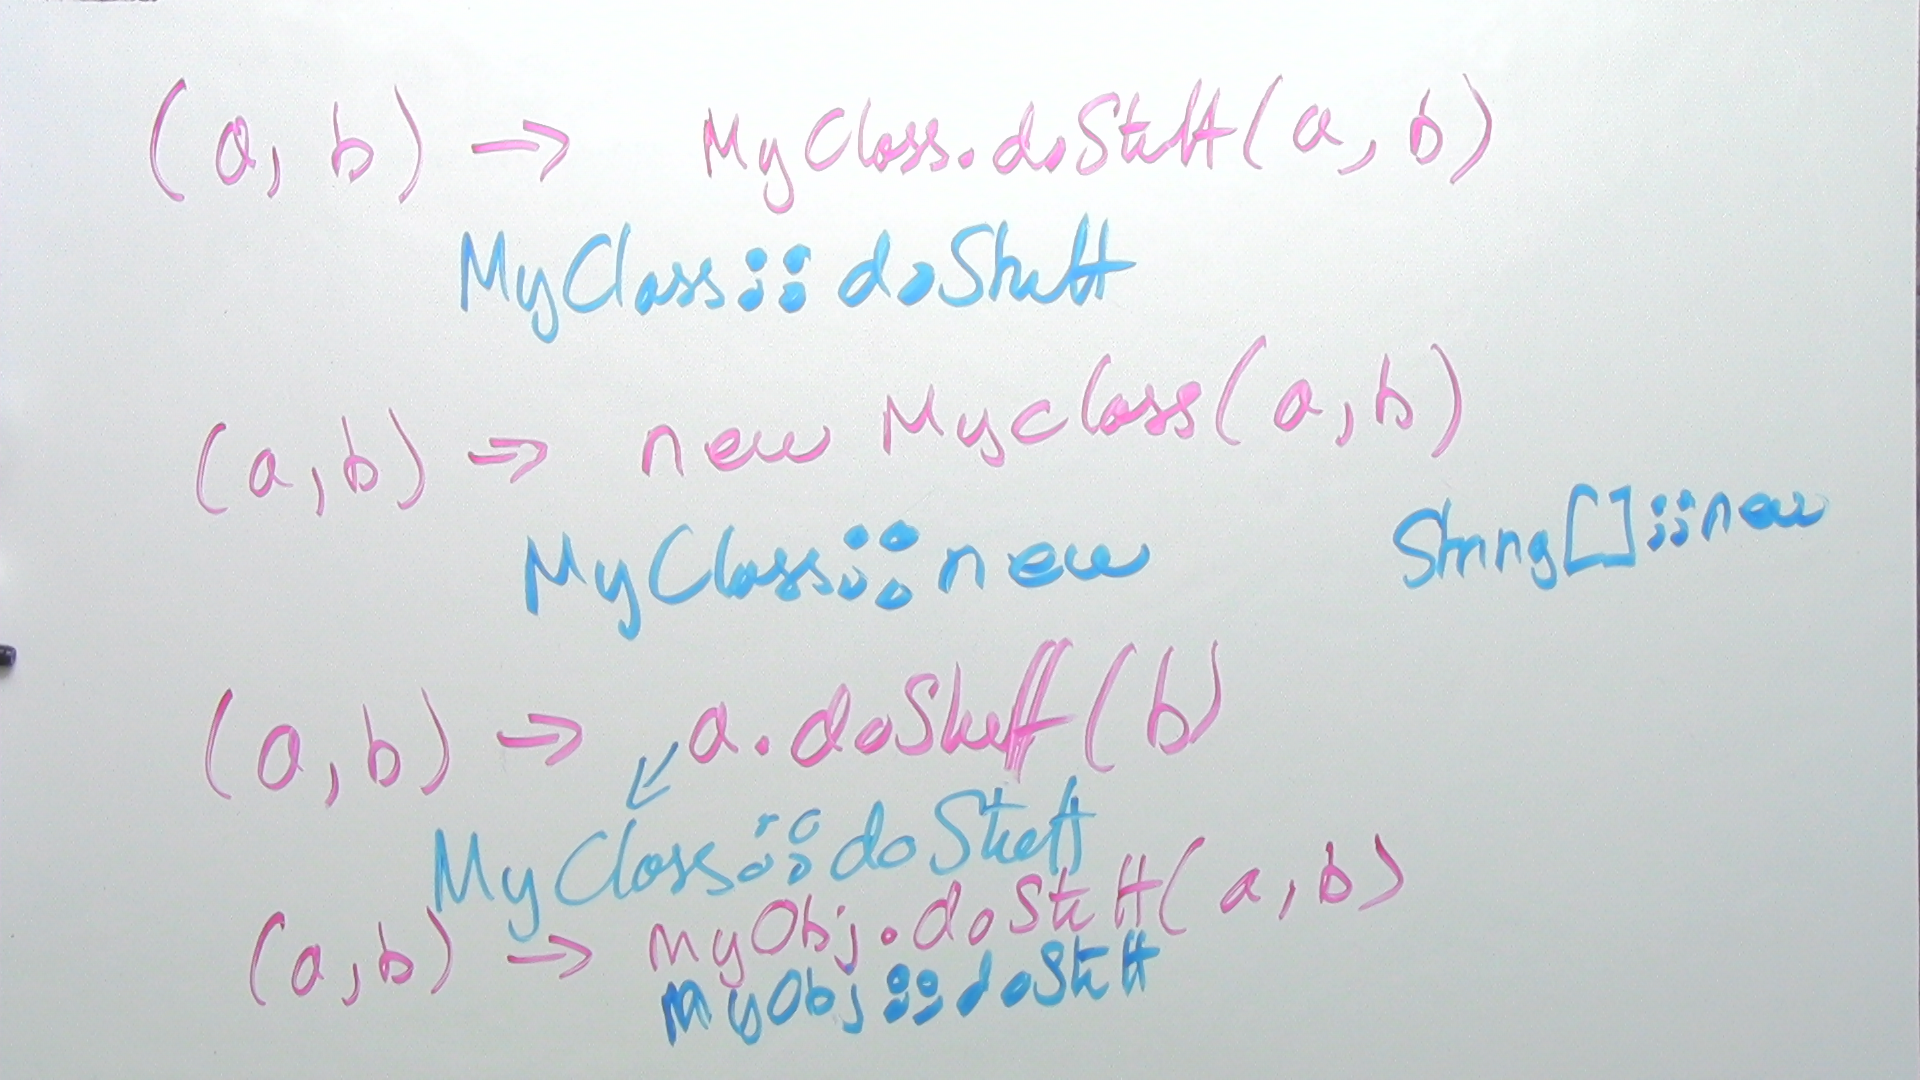 (a, b) -> MyClass.doStuff(a, b)
MyClass::doStuff
(a, b) -> new Myclass(a, b)
MyClass::new String[]::new
(a, b) -> a.doStuff(b)
MyClass::doStuff
(a, b) -> myObj.doStuff(a, b)
myObj::doStuff